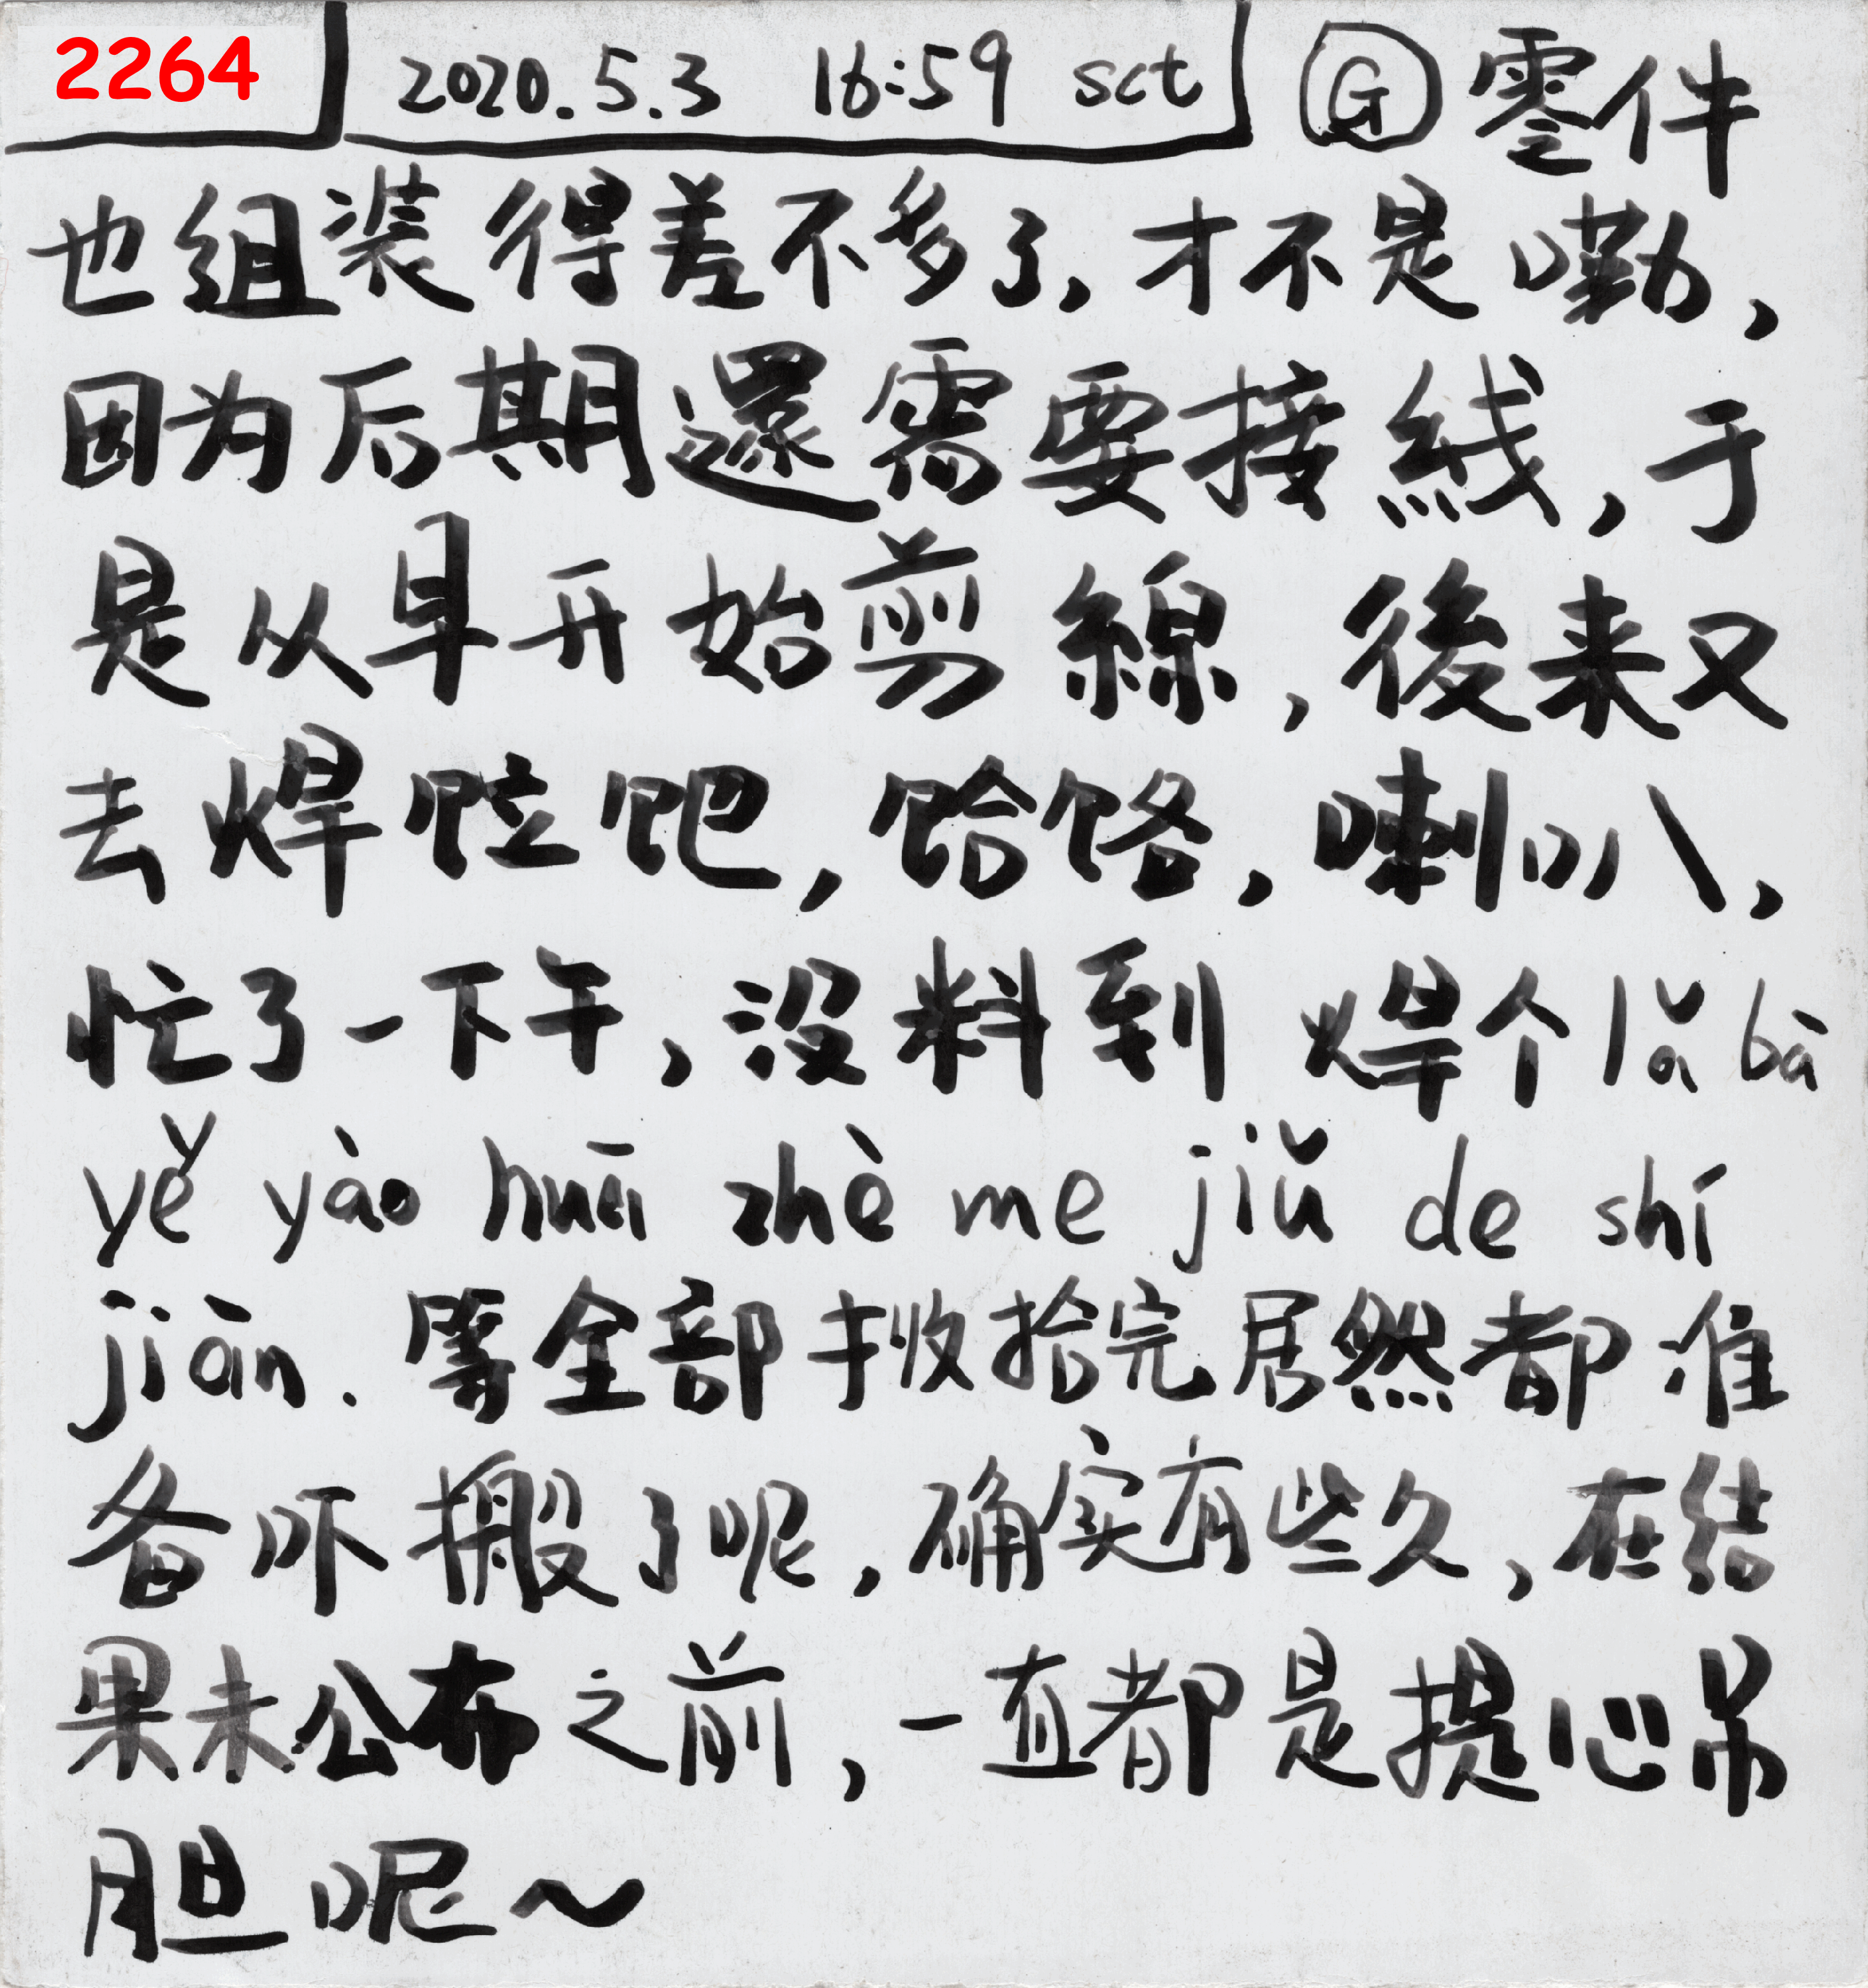 2264 2020.5.3 16:59 sct Ⓖ 零件
也组装得差不多了,才不是嘞,
因为后期還需要接綫,于
是从早开始剪線,後来又
去焊,饸饹,喇叭,
忙了一下午,没料到 焊个lǎ bā
yě yào huā zhè me jiǔ de shí
jiān.等全部收拾完居然都准
备吓搬了呢,确实有些久,在结
果未公布之前,一直都是提心吊
胆呢~